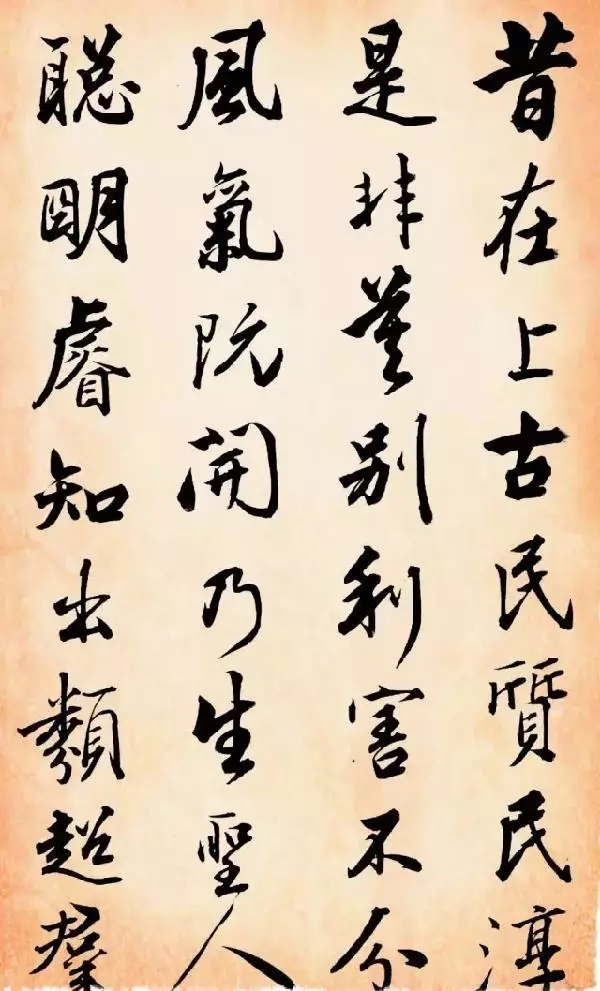 昔在上古民質民淳
是非莫別利害不分
風氣既開乃生聖人
聰明睿知出類超羣